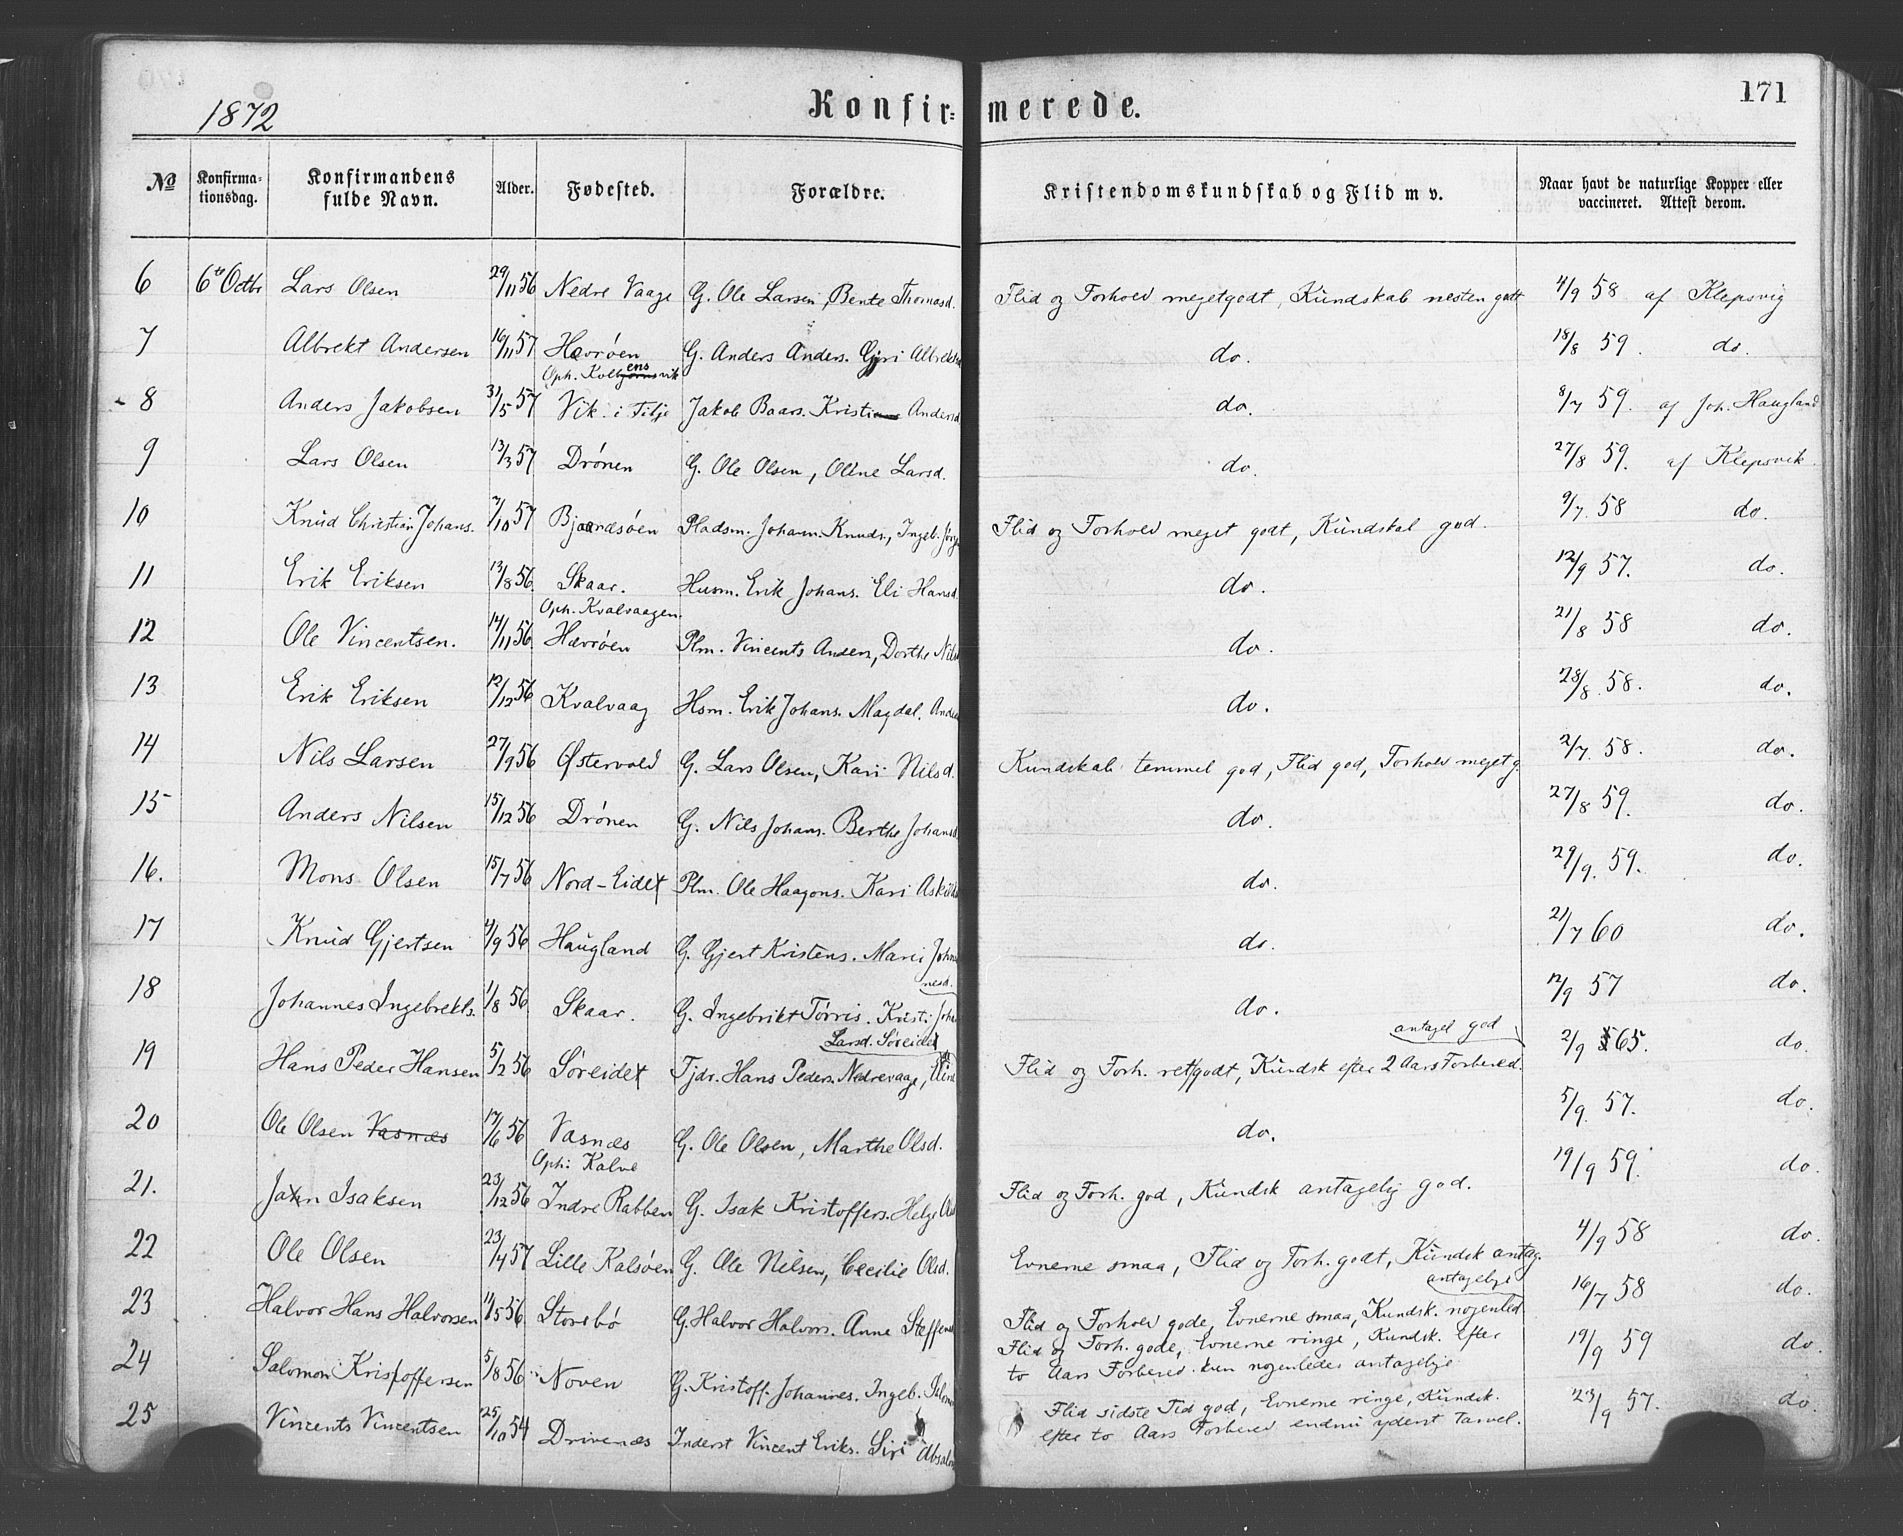 1872 Konfir= merede. 171
№ Konfirma-tionsdag. Konfirmandens fulde Navn. Alder. Fødested. Forældre. Kristendomskundskab og Flid m v. Naar havt de naturlige Kopper eller vaccineret. Attest derom.
6 6te Octbr Lars Olsen 29/11 56 Nedre Vaage G. Ole Larsen, Bente Thomasd. Flid og Forhold megetgodt, Kundskab nesten godt 4/9 58 af Klepsvig
7 Albrekt Andersen 16/11 57 Hevrøen G. Anders Anders. Gjri Albrektsd do. 18/8 59. do.
Oph. Kolbens vik
8 Anders Jakobsen 31/5 57 Vik i Tilje Jakob Baars. Kristi Andersd do. 8/7 59. af Joh. Haugland
9 Lars Olsen 13/3 57 Drønen G. Ole Olsen, Oline Larsd. do. 27/8 59. af Klepsvik.
10 Knud Christian Johans. 7/10 57 Bjaanæsøen Pladsm. Johann. Knuds., Ingeb. Jørg Flid og Forhold meget godt, Kundskab god. 9/7. 58 do.
11 Erik Eriksen 13/8 56. Skaar. Husm. Erik Johans. Eli Hansd. do. 12/9 57. do.
Oph. Kvalvaagen.
12 Ole Vincentsen. 14/11 56 Hævrøen Plm. Vincents Anders, Dorthe Nils do. 21/8 58 do.
13 Erik Eriksen 12/12 56 Kvalvaag Hsm. Erik Johans. Magdal. Anders do. 28/8. 58. do.
14 Nils Larsen 27/9 56 Østervold G. Lars Olsen, Kari Nilsd. Kundskab temmel god, Flid god, Forhold meget g. 2/7. 58. do.
15 Anders Nilsen 15/12 56 Drønen G. Nils Johans. Berthe Johansd do. 27/8 59. do.
16. Mons Olsen 15/7 56 Nord-Eidet Plm. Ole Haagons. Kari Askild do. 29/9. 59. do.
17 Knud Gjertsen 4/9 56 Haugland G. Gjert Kristens. Mari Johan do. 21/7 60 do.
nesd.
18 Johannes Ingebrekts. 1/8 56 Skaar. G. Ingebrikt Tørris. Kristi Joha do. 12/9 57 do.
Larsd. Søreidet antagel god
19 Hans Peder Hansen 5/2 56 Søreidet Tjdr. Hans Peders. Nedrevaage, Flid og Forh. retgodt, Kundsk efter 2 Aars Forbered. 2/9 65. do.
20 Ole Olsen Vasnæs 17/6 56 Vasnæs G. Ole Olsen, Marthe Olsd. do. 5/9. 57. do.
Oph: Kalve
21. Jan Isaksen 23/12 56 Indre Rabben G. Isak Kristoffers. Helge Flid og Forh. god, Kundsk antagelig god. 19/9 59. do.
22 Ole Olsen 23/4 57 Lille Kalsøen G. Ole Nilsen, Cecilie Olsd. Evnerne smaa, Flid og Forh. godt, Kundsk antag. 4/9 58 do.
antagelige
23 Halvor Hans Halvorsen 11/5 56. Storebø G. Halvor Halvors. Anne Steffensd Flid og Forhold gode, Evnerne smaa, Kundsk. nogenled 16/7 58 do.
24 Salomon Kristoffersen 5/8 56 Noven G. Kristoff. Johannes. Ingeb. Salomo Flid og Forh. gode, Evnerne ringe, Kundsk. efter 19/9 59 do.
to Aars Forbered. kun nogenledes antagelige
25 Vincents Vincentsen 25/10 54 Drivenæs Inderst Vincent Eriks. Siri Absalo Flid sidste Tid god, Evnerne ringe, Kundsk. 23/9 57. do.
efter to Aars Forbered endnu yderst tarvel.